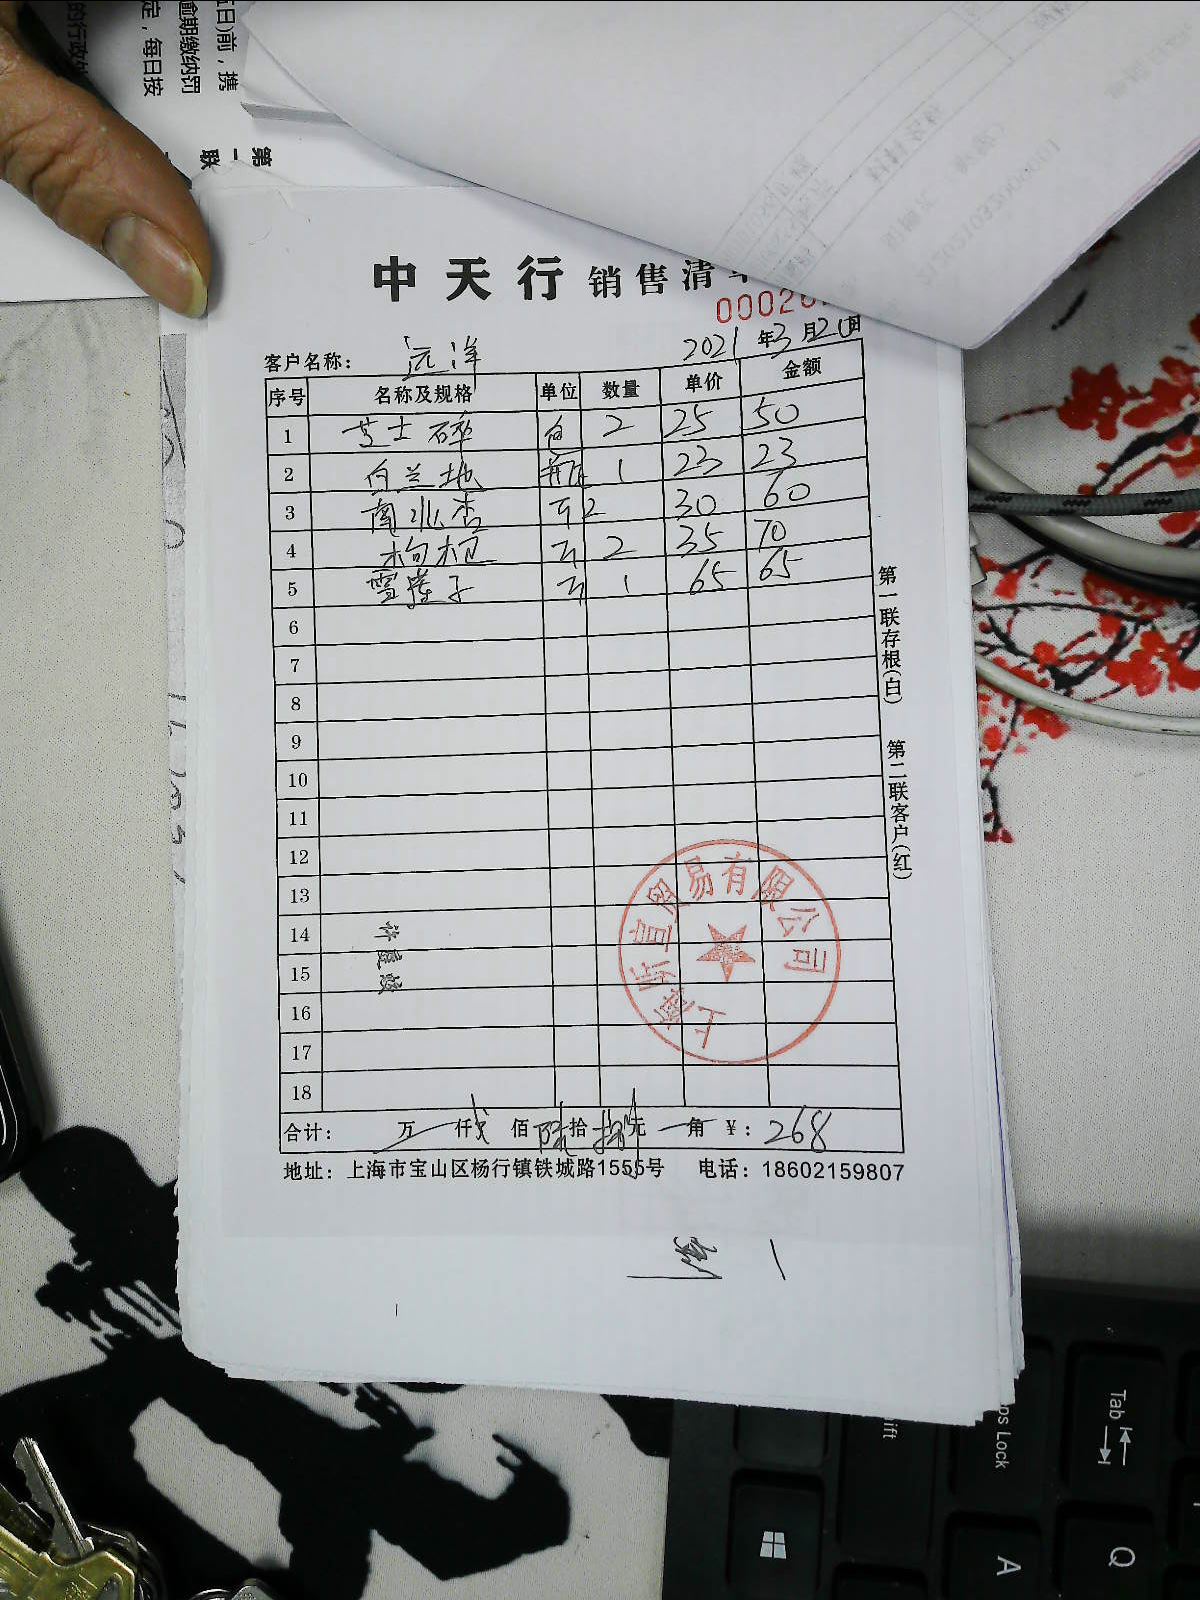 日)前，携
逾期缴纳罚
定，每日按
的行政
第一联
中天行 销售清
00026
客户名称： 远洋 2021 年 3 月 20 日
序号 名称及规格 单位 数量 单价 金额
1 芝士碎 包 2 25 50
2 白兰地 瓶 1 23 23
3 南北杏 斤 2 30 60
4 枸杞 斤 2 35 70
5 雪莲子 斤 1 65 65
6
7
8
9
10
11
12
13
14
15
16
17
18
第一联存根(白) 第二联客户(红)
上海昕宣贸易有限公司
合计： 万 仟 贰 佰 陆 拾 捌 元 角 ￥：268
地址：上海市宝山区杨行镇铁城路1555号 电话：18602159807
Tab
ps Lock
ift
A
Q